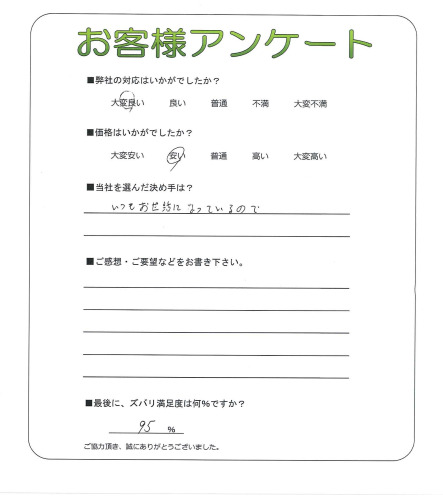 お客様アンケート
■弊社の対応はいかがでしたか?
大変良い 良い 普通 不満 大変不満
■価格はいかがでしたか?
大変安い 安い 普通 高い 大変高い
■当社を選んだ決め手は?
いつもお世話になっているので
■ご感想・ご要望などをお書き下さい。
■最後に、ズバリ満足度は何%ですか?
95 %
ご協力頂き、誠にありがとうございました。